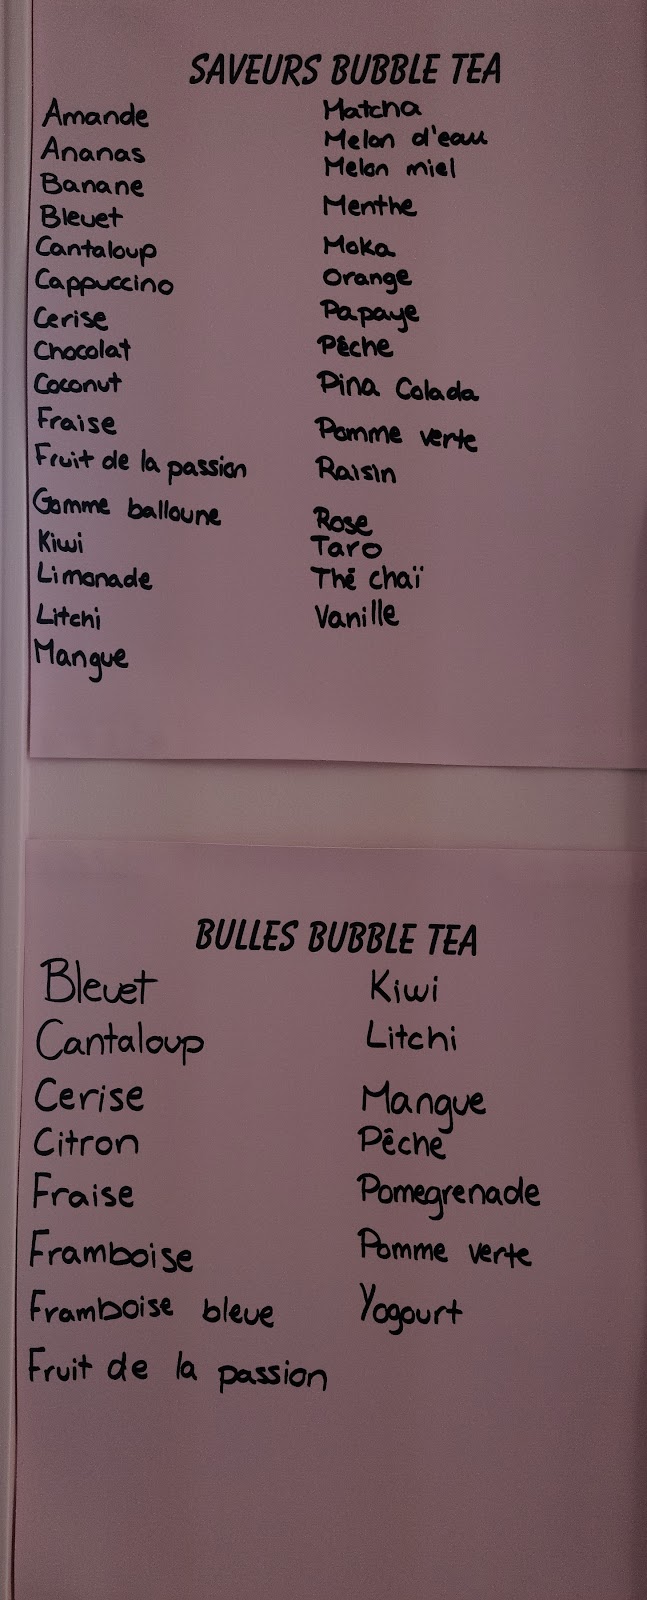 SAVEURS BUBBLE TEA
Amande
Ananas
Banane
Bleuet
Cantaloup
Cappuccino
Cerise
Chocolat
Coconut
Fraise
Fruit de la passion
Gomme balloune
Kiwi
Limonade
Litchi
Mangue
Matcha
Melon d'eau
Melon miel
Menthe
Moka
Orange
Papaye
Pêche
Pina Colada
Pomme verte
Raisin
Rose
Taro
Thé chaï
Vanille
BULLES BUBBLE TEA
Bleuet
Cantaloup
Cerise
Citron
Fraise
Framboise
Framboise bleue
Fruit de la passion
Kiwi
Litchi
Mangue
Pêche
Pomegrenade
Pomme verte
Yogourt